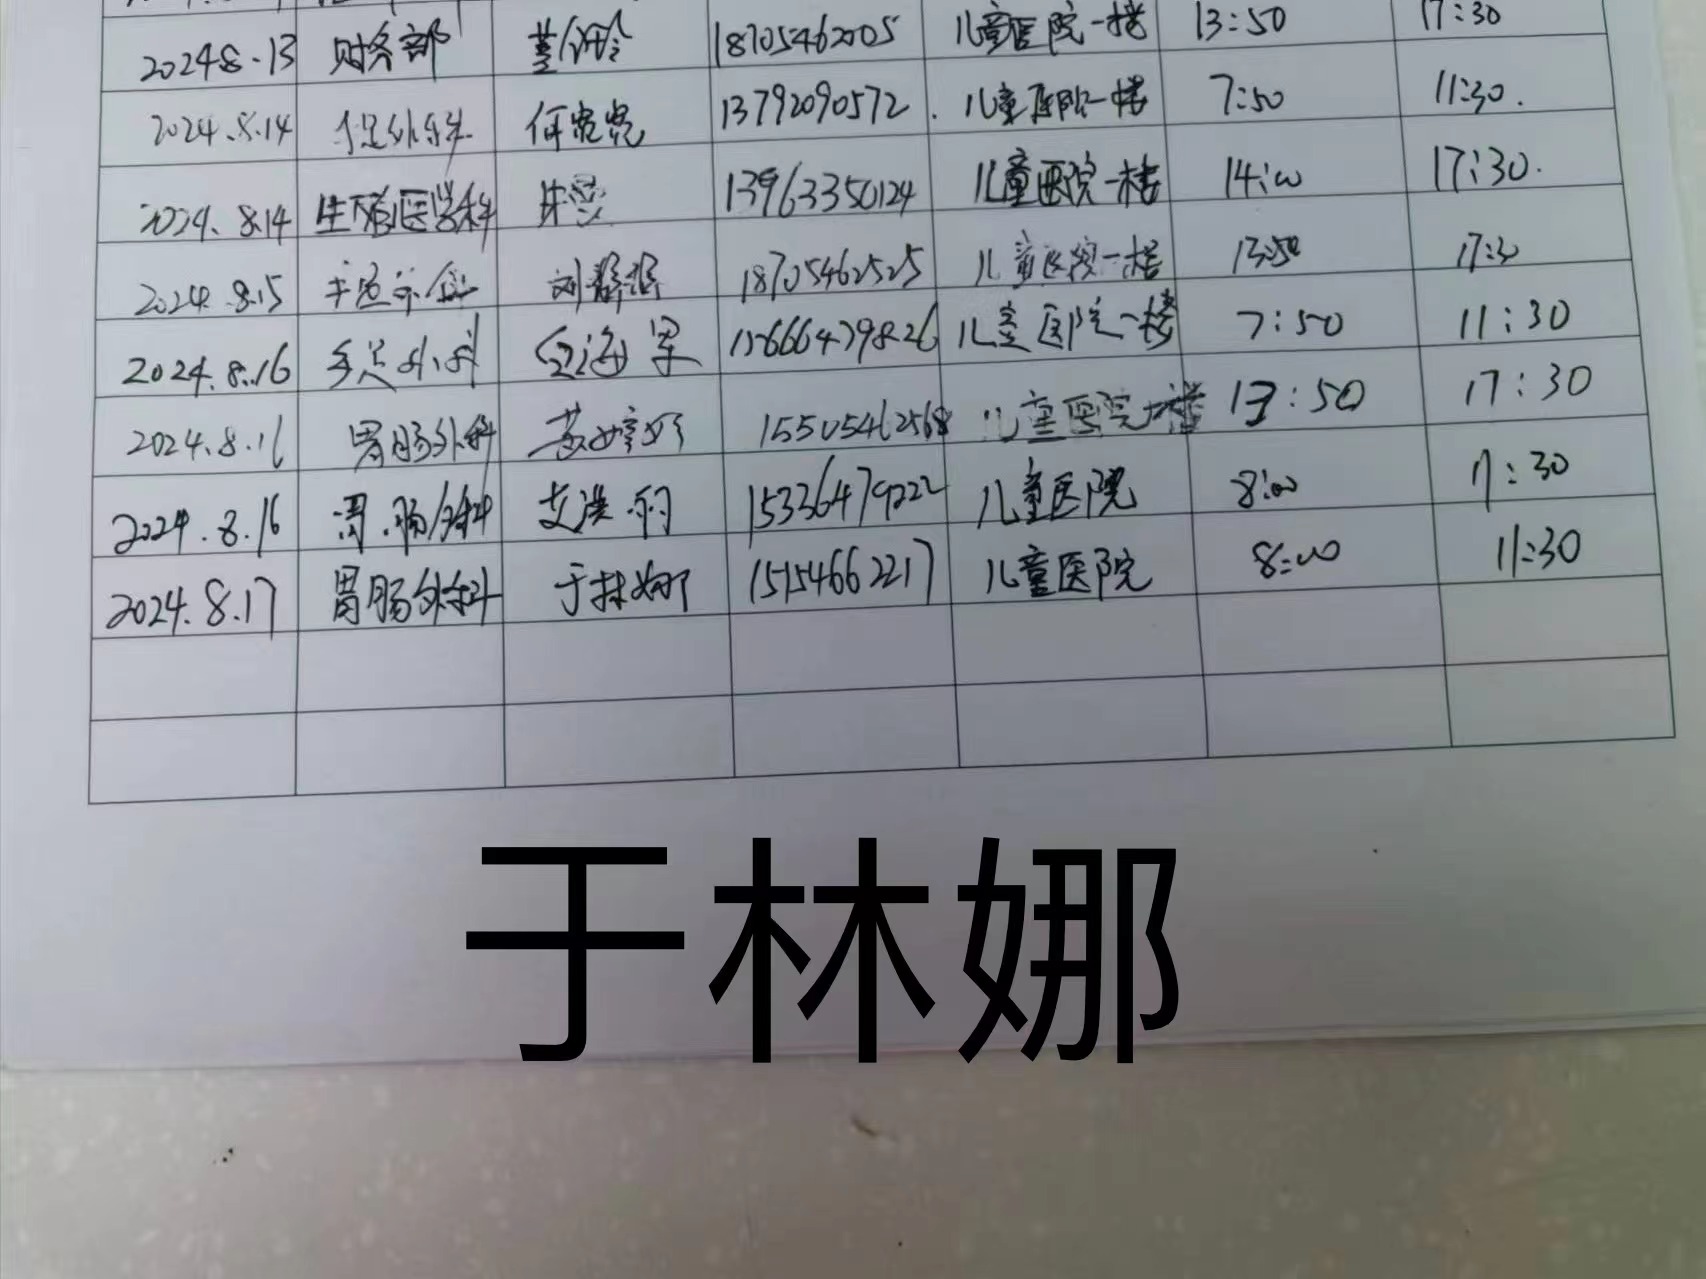 2024.8.13 财务部 18705462005 儿童医院一楼 13:50 17:30
2024.8.14 手足外科 何宽宽 13792090572 儿童医院一楼 7:50 11:30.
2024.8.14 生殖医学科 13963350124 儿童医院一楼 14:00 17:30.
2024.8.15 18705462525 儿童医院一楼 13:50 17:30
2024.8.16 手足外科 15666479826 儿童医院一楼 7:50 11:30
2024.8.16 胃肠外科 黄婷婷 15505462568 儿童医院一楼 13:50 17:30
2024.8.16 胃肠外科 15336479222 儿童医院 8:00 11:30
2024.8.17 胃肠外科 于林娜 15154662217 儿童医院 8:00 11:30
于林娜